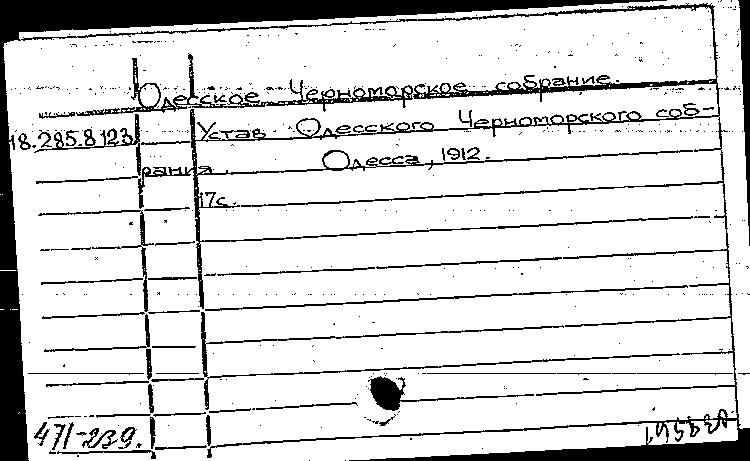 Одесское Черноморское собрание.
18.285.8123 Устав Одесского Черноморского соб-
рания. Одесса, 1912.
17с.
471-239.